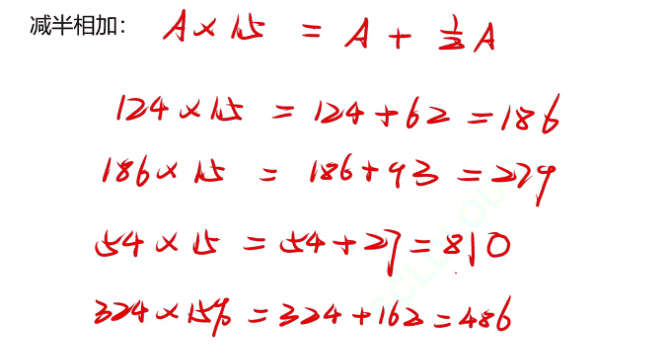 减半相加： A × 15 = A + 1/2 A
124 × 15 = 124 + 62 = 186
186 × 15 = 186 + 93 = 279
54 × 15 = 54 + 27 = 81.0
324 × 15% = 324 + 162 = 486